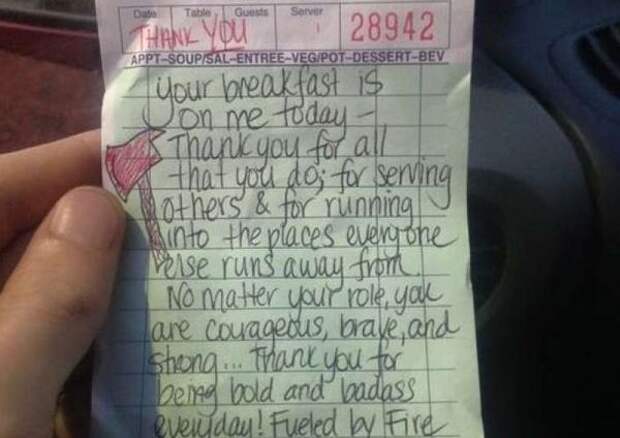 Date Table Guests Server
THANK YOU 28942
APPT-SOUP/SAL-ENTREE-VEG/POT-DESSERT-BEV
your breakfast is
on me today -
Thank you for all
that you do; for serving
others & for running
into the places everyone
else runs away from
No matter your role, you
are courageous, brave, and
strong... Thank you for
being bold and badass
everyday! Fueled by Fire